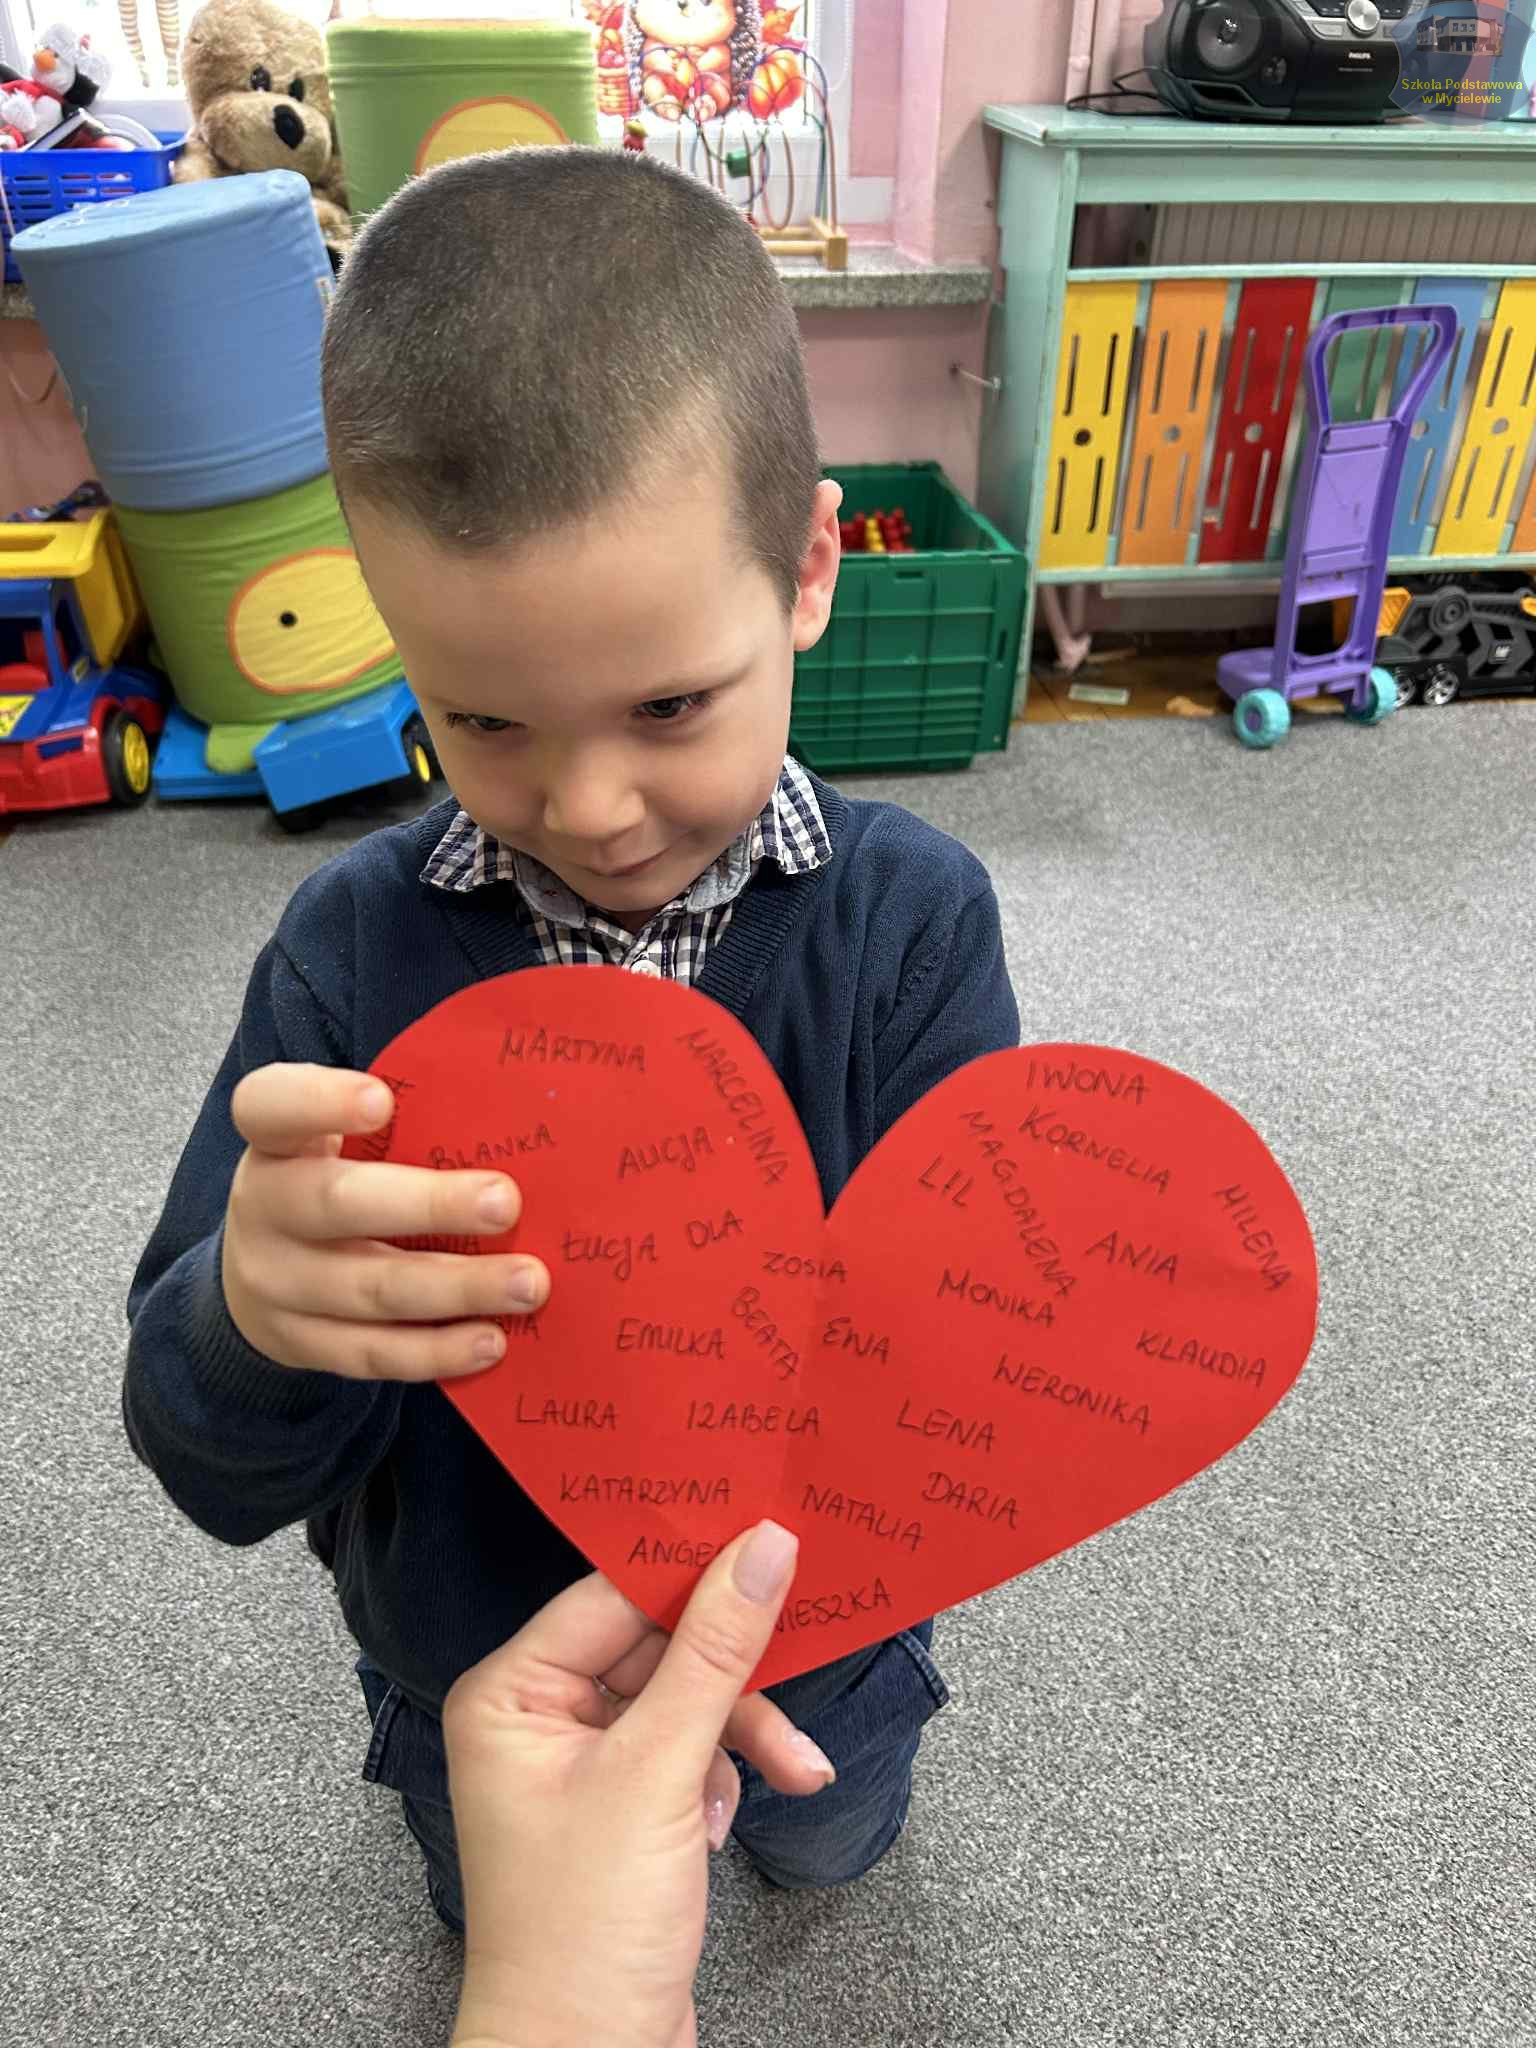 Szkoła Podstawowa
w Mycielewie
PHILIPS
MARTYNA
MARCELINA
BLANKA
ALICJA
ŁUCJA
OLA
EMILKA
BEATA
LAURA
IZABELA
KATARZYNA
IWONA
KORNELIA
MAGDALENA
LIL
MILENA
ANIA
ZOSIA
MONIKA
EWA
KLAUDIA
WERONIKA
LENA
DARIA
NATALIA